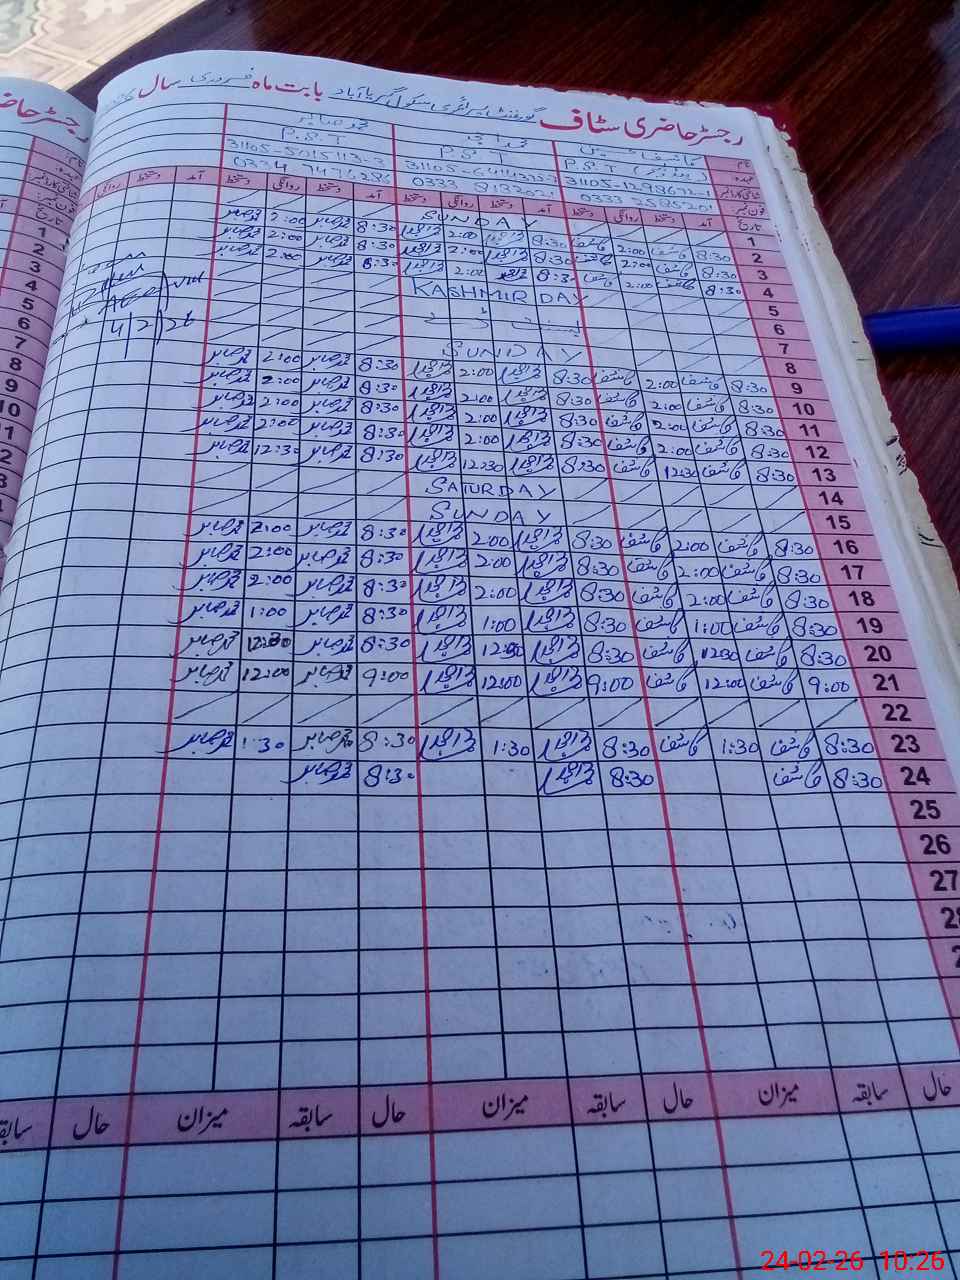 رجسٹر حاضری سٹاف گورنمنٹ پرائمری سکول گہریا آباد بابت ماہ فروری سال
نام کاشف حسین محمد امجد محمد صابر
عہدہ P.S.T (ہیڈ ٹیچر) P.S.T P.S.T
شناختی کارڈ نمبر 31105-1298672-1 31105-5015113-3
فون نمبر 0333 2585201 0333 8132021
تاریخ آمد دستخط روانگی دستخط آمد دستخط روانگی دستخط آمد دستخط روانگی دستخط آمد دستخط روانگی
1 SUNDAY
2 8:30 کاشف 2:00 کاشف 8:30 محمد امجد 2:00 محمد امجد 8:30 محمد صابر 2:00 محمد صابر
3 8:30 کاشف 2:00 کاشف 8:30 محمد امجد 2:00 محمد امجد 8:30 محمد صابر 2:00 محمد صابر
4 8:30 کاشف 2:00 کاشف 8:30 محمد امجد 2:00 محمد امجد 8:30 محمد صابر 2:00 محمد صابر
5 KASHMIR DAY
6
7
8 SUNDAY
9 8:30 کاشف 2:00 کاشف 8:30 محمد امجد 2:00 محمد امجد 8:30 محمد صابر 2:00 محمد صابر
10 8:30 کاشف 2:00 کاشف 8:30 محمد امجد 2:00 محمد امجد 8:30 محمد صابر 2:00 محمد صابر
11 8:30 کاشف 2:00 کاشف 8:30 محمد امجد 2:00 محمد امجد 8:30 محمد صابر 2:00 محمد صابر
12 8:30 کاشف 2:00 کاشف 8:30 محمد امجد 2:00 محمد امجد 8:30 محمد صابر 2:00 محمد صابر
13 8:30 کاشف 12:30 کاشف 8:30 محمد امجد 12:30 محمد امجد 8:30 محمد صابر 12:30 محمد صابر
14 SATURDAY
15 SUNDAY
16 8:30 کاشف 2:00 کاشف 8:30 محمد امجد 2:00 محمد امجد 8:30 محمد صابر 2:00 محمد صابر
17 8:30 کاشف 2:00 کاشف 8:30 محمد امجد 2:00 محمد امجد 8:30 محمد صابر 2:00 محمد صابر
18 8:30 کاشف 2:00 کاشف 8:30 محمد امجد 2:00 محمد امجد 8:30 محمد صابر 2:00 محمد صابر
19 8:30 کاشف 1:00 کاشف 8:30 محمد امجد 1:00 محمد امجد 8:30 محمد صابر 1:00 محمد صابر
20 8:30 کاشف 12:30 کاشف 8:30 محمد امجد 12:30 محمد امجد 8:30 محمد صابر 12:30 محمد صابر
21 9:00 کاشف 12:00 کاشف 9:00 محمد امجد 12:00 محمد امجد 9:00 محمد صابر 12:00 محمد صابر
22
23 8:30 کاشف 1:30 کاشف 8:30 محمد امجد 1:30 محمد امجد 8:30 محمد صابر 1:30 محمد صابر
24 8:30 کاشف 8:30 محمد امجد 8:30 محمد صابر
25
26
27
حال سابقہ میزان حال سابقہ میزان حال سابقہ میزان حال
24-02-26 10:26